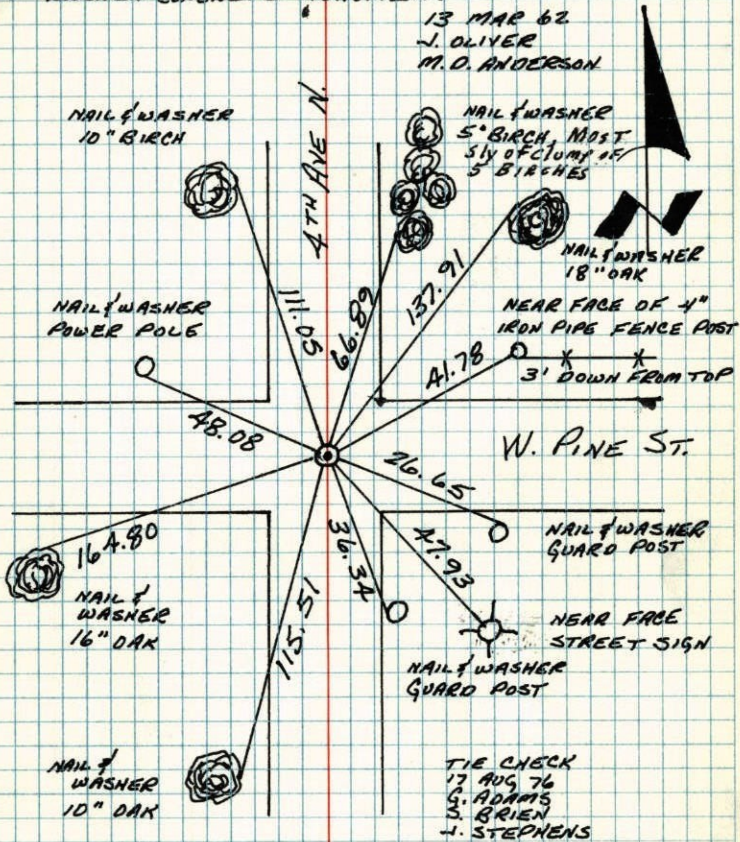 13 MAR 62
J. OLIVER
M.D. ANDERSON
4TH AVE N.
NAIL & WASHER
10" BIRCH
NAIL & WASHER
5" BIRCH, MOST
S'LY OF CLUMP OF
5 BIRCHES
NAIL & WASHER
18" OAK
NAIL & WASHER
POWER POLE
NEAR FACE OF 4"
IRON PIPE FENCE POST
3' DOWN FROM TOP
111.05
66.89
137.91
41.78
48.08
W. PINE ST.
26.65
164.80
36.34
47.93
115.51
NAIL & WASHER
GUARD POST
NAIL &
WASHER
16" OAK
NEAR FACE
STREET SIGN
NAIL & WASHER
GUARD POST
NAIL &
WASHER
10" OAK
TIE CHECK
17 AUG 76
G. ADAMS
S. BRIEN
J. STEPHENS